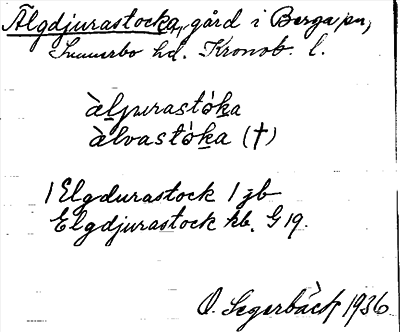 Älgdjurastocka, gård i Berga sn,
Sunnerbo hd. Kronob. l.
àljurastóka
àlvastóka (†)
1 Elgdurastock 1 jb
Elgdjurastock kb. G 19.
O. Segerbäck 1936